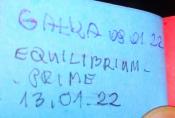 GALKA 09.01.22
EQUILIBRIUM-
-PRIME
13.01.22